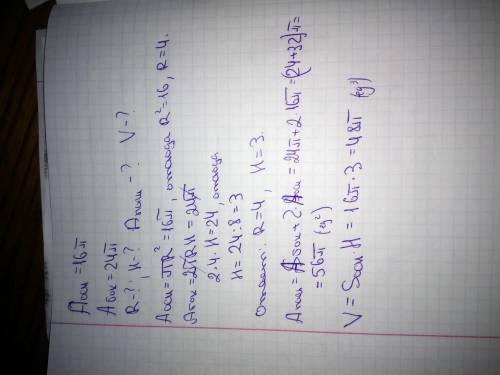 Aосн = 16π
Aбок = 24π
R-? H-? Aполн-? V-?
Aосн = πR² = 16π, откуда R² = 16, R = 4.
Aбок = 2πRH = 24π
2·4·H = 24, откуда
H = 24:8 = 3
Ответ: R = 4, H = 3.
Aполн = Aбок + 2·Aосн = 24π + 2·16π = (24+32)π =
= 56π (ед²)
V = Sосн·H = 16π·3 = 48π (ед³)